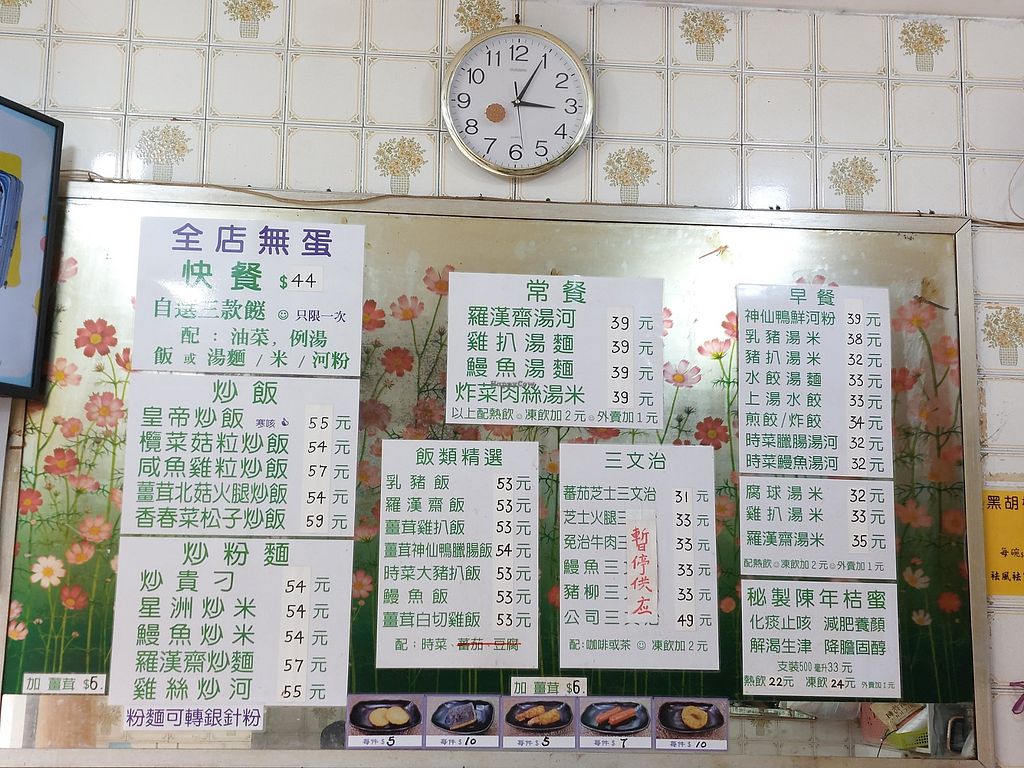 12
1
2
3
4
5
6
7
8
9
10
11
全店無蛋
快餐 $44
自選三款餸 ☺ 只限一次
配：油菜, 例湯
飯 或 湯麵 / 米 / 河粉
炒飯
皇帝炒飯 寒咳 55元
欖菜菇粒炒飯 54元
咸魚雞粒炒飯 57元
薑茸北菇火腿炒飯 54元
香春菜松子炒飯 59元
炒粉麵
炒貴刁 54元
星洲炒米 54元
鰻魚炒米 54元
羅漢齋炒麵 57元
雞絲炒河 55元
加 薑茸 $6.
粉麵可轉銀針粉
常餐
羅漢齋湯河 39元
雞扒湯麵 39元
鰻魚湯麵 39元
炸菜肉絲湯米 39元
以上配熱飲☺凍飲加2元☺外賣加1元
HappyCow
飯類精選
乳豬飯 53元
羅漢齋飯 53元
薑茸雞扒飯 53元
薑茸神仙鴨臘腸飯 54元
時菜大豬扒飯 53元
鰻魚飯 53元
薑茸白切雞飯 53元
配：時菜、蕃茄、豆腐
三文治
蕃茄芝士三文治 31元
芝士火腿三 33元
免治牛肉三 33元
鰻魚三 33元
豬柳三 33元
公司三文治 49元
暫停供应
配:咖啡或茶 ☺ 凍飲加2元
加 薑茸 $6.
每件$5
每件$10
每件$5
每件$7
每件$10
早餐
神仙鴨鮮河粉 39元
乳豬湯米 38元
豬扒湯米 32元
水餃湯麵 33元
上湯水餃 33元
煎餃/炸餃 34元
時菜臘腸湯河 32元
時菜鰻魚湯河 32元
腐球湯米 32元
雞扒湯米 33元
羅漢齋湯米 35元
配熱飲☺凍飲加2元☺外賣加1元
秘製陳年桔蜜
化痰止咳 減肥養顏
解渴生津 降膽固醇
支裝500毫升33元
熱飲22元 凍飲24元 外賣加1元
黑胡
每碗
祛風祛